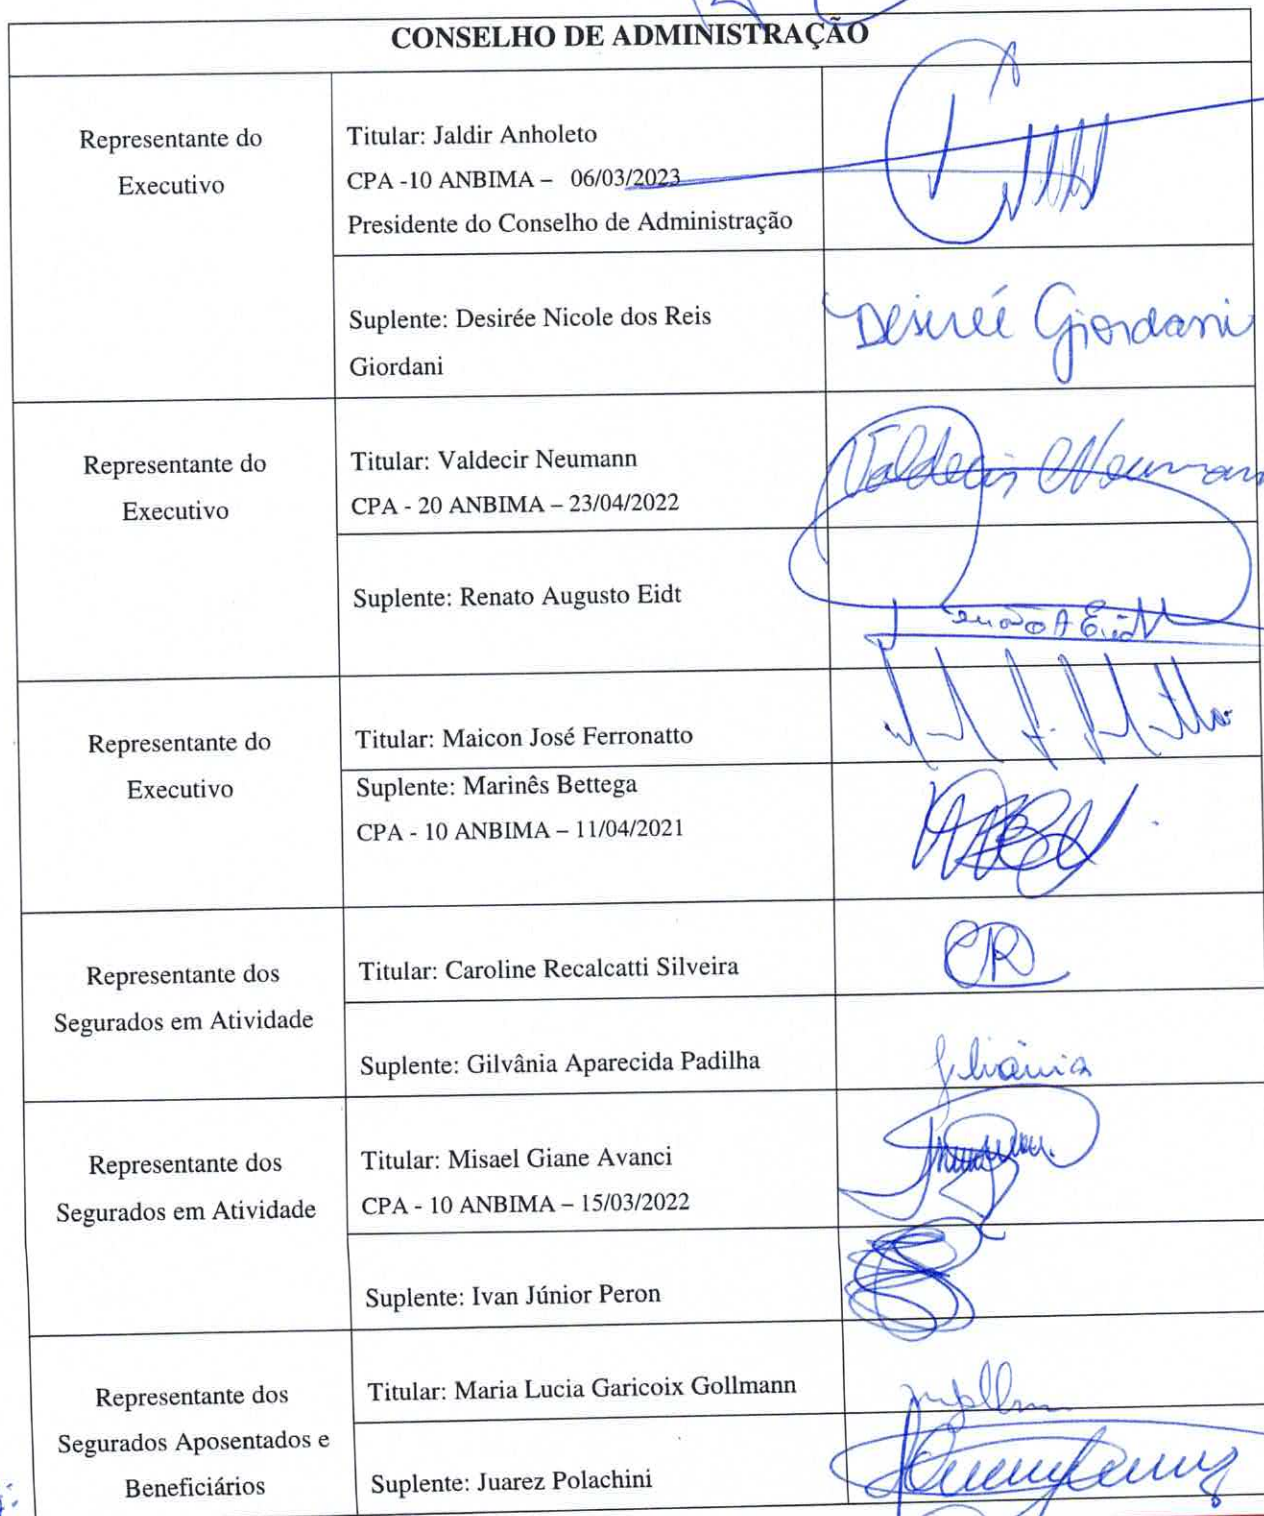 CONSELHO DE ADMINISTRAÇÃO
Representante do
Executivo
Titular: Jaldir Anholeto
CPA -10 ANBIMA – 06/03/2023
Presidente do Conselho de Administração
Suplente: Desirée Nicole dos Reis
Giordani
Desireé Giordani
Representante do
Executivo
Titular: Valdecir Neumann
CPA - 20 ANBIMA – 23/04/2022
Valdecir Neumann
Suplente: Renato Augusto Eidt
Representante do
Executivo
Titular: Maicon José Ferronatto
Suplente: Marinês Bettega
CPA - 10 ANBIMA – 11/04/2021
Representante dos
Segurados em Atividade
Titular: Caroline Recalcatti Silveira
CR
Suplente: Gilvânia Aparecida Padilha
Gilvânia
Representante dos
Segurados em Atividade
Titular: Misael Giane Avanci
CPA - 10 ANBIMA – 15/03/2022
Suplente: Ivan Júnior Peron
Representante dos
Segurados Aposentados e
Beneficiários
Titular: Maria Lucia Garicoix Gollmann
Suplente: Juarez Polachini